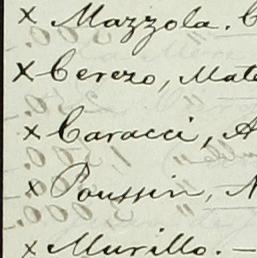 x Mazzola. C
x Cerezo, Mate
x Caracci, A
x Poussin, N
x Murillo. —